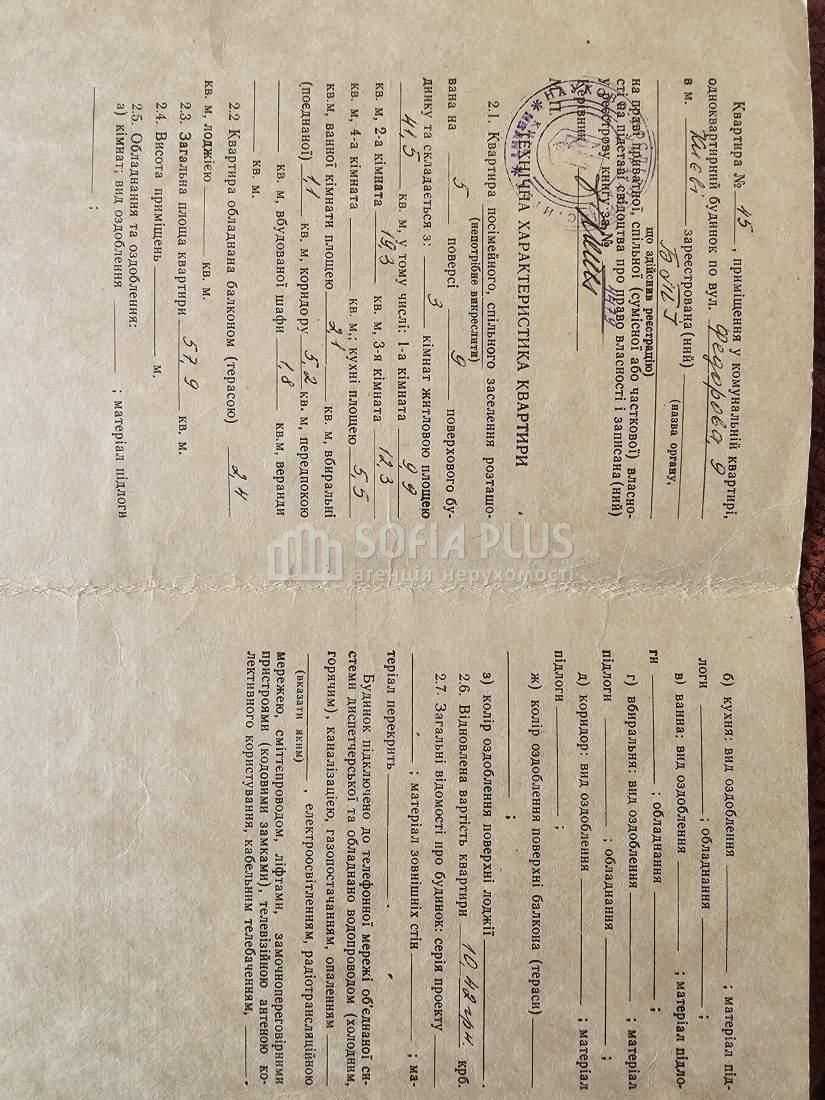 Квартира № 45, приміщення у комунальній квартирі,
одноквартирний будинок по вул. Федорова, 9
в м. Києві зареєстрована (ний)
(назва органу,
БТІ
що здійснив реєстрацію)
на праві приватної, спільної (сумісної або часткової) власно-
сті на підставі свідоцтва про право власності і записана (ний)
у реєстрову книгу за №
Керівник
М. П.
ТЕХНІЧНА ХАРАКТЕРИСТИКА КВАРТИРИ
2.1. Квартира посімейного, спільного заселення розташо-
(непотрібне викреслити)
вана на 5 поверсі 9 поверхового бу-
динку та складається з: 3 кімнат житловою площею
41,5 кв. м, у тому числі: 1-а кімната 9,9
кв. м, 2-а кімната 19,3 кв. м, 3-я кімната 12,3
кв. м, 4-а кімната кв. м,; кухні площею 5,5
кв.м, ванної кімнати площею 2,1 кв. м, вбиральні
(поєднаної) 1,1 кв. м, коридору 5,2 кв. м, передпокою
кв. м, вбудованої шафи 1,8 кв.м, веранди
кв. м.
2.2 Квартира обладнана балконом (терасою) 2,4
кв. м, лоджією кв. м.
2.3. Загальна площа квартири 57,9 кв. м.
2.4. Висота приміщень м.
2.5. Обладнання та оздоблення:
а) кімнат; вид оздоблення ; матеріал підлоги
;
б) кухня: вид оздоблення ; матеріал під-
логи ; обладнання ;
в) ванна: вид оздоблення ; матеріал підло-
ги ; обладнання ;
г) вбиральня: вид оздоблення ; матеріал
підлоги ; обладнання ;
д) коридор: вид оздоблення ; матеріал
підлоги ;
ж) колір оздоблення поверхні балкона (тераси)
;
з) колір оздоблення поверхні лоджії .
2.6. Відновлена вартість квартири 10,42 грн. крб.
2.7. Загальні відомості про будинок: серія проекту
; матеріал зовнішніх стін ; ма-
теріал перекрить .
Будинок підключено до телефонної мережі об'єднаної си-
стеми диспетчерської та обладнано водопроводом (холодним,
горячим), каналізацією, газопостачанням, опаленням
(вказати яким) , електроосвітленням, радіотрансляційною
мережею, сміттєпроводом, ліфтами, замочнопереговірними
пристроями (кодовими замками), телевізійною антеною ко-
лективного користування, кабельним телебаченням, .
SOFIA PLUS
агенція нерухомості